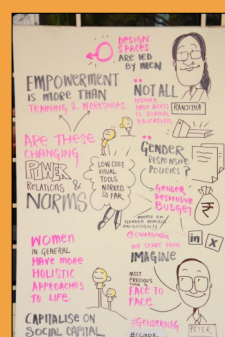 DESIGN
SPACES
ARE LED
BY MEN
EMPOWERMENT
IS MORE THAN
TRAINING & WORKSHOPS
NOT ALL
WOMEN
HAVE ACCESS
TO FORMAL
EDUCATION
RANJITHA
ARE THESE
CHANGING
POWER
RELATIONS &
NORMS
LOW COST
VISUAL
TOOLS
WORKED
SO FAR
GENDER
RESPONSIVE
POLICIES?
GENDER
RESPONSIVE
BUDGET
₹
WOMEN
IN GENERAL
HAVE MORE
HOLISTIC
APPROACHES
TO LIFE
in X
IMAGINE
MOST
PRECIOUS
FACE TO
FACE
CAPITALISE ON
SOCIAL CAPITAL
PETER